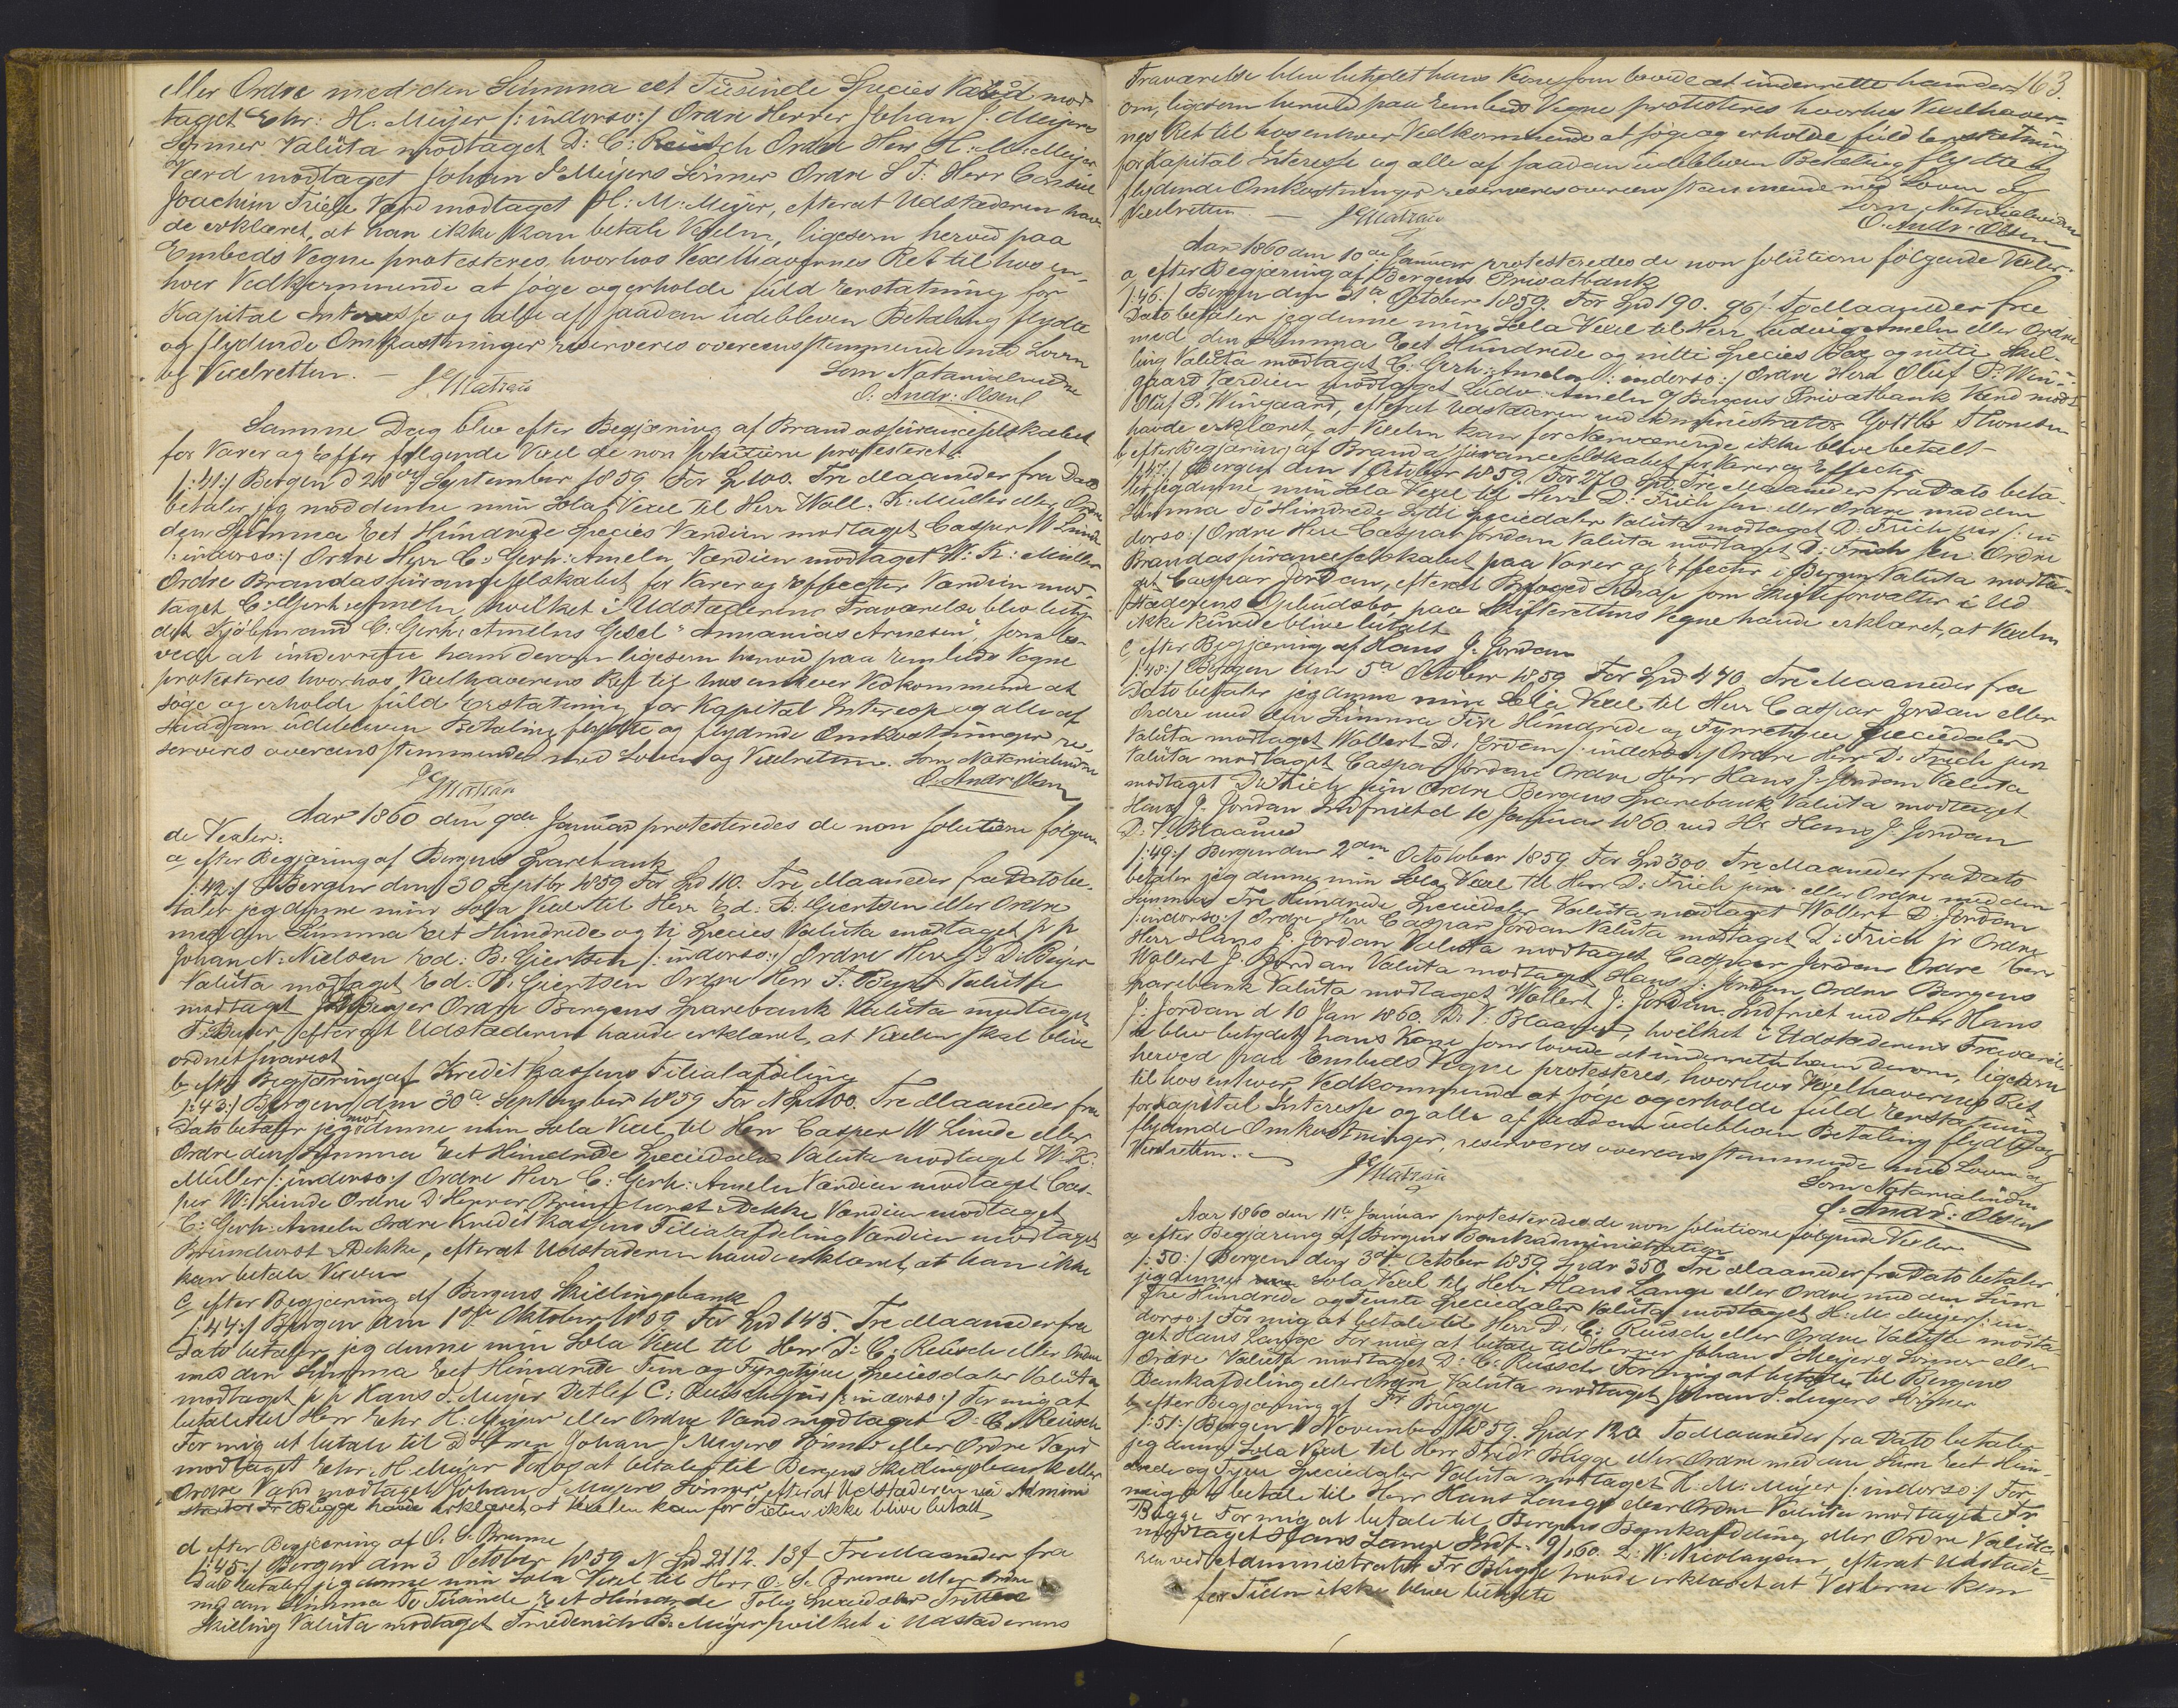 eller Ordre med den Summa eet Tusinde Species Værd mod
taget Ehr: H. Meijer /: indorso:/ Ordre Herrer Johan J. Meijers
Sønner Valuta modtaget D: C: Reusch Ordre Herr H: M: Meijer
Værd modtaget Johan J Meijers Sønner Ordre S T. Herr Consul
Joachim Friele Værd modtaget H: M: Meijer, efterat Udstæderen hav
de erklæret, at han ikke kan betale Vexeln, ligesom herved paa
Embeds Vegne protesteres, hvorhos Vexelhavernes Ret til hos en
hver Vedkommende at søge og erholde fuld Erstatning for
Kapital Interesse og alle af saadan udebleven Betaling flydte
og flydende Omkostninger reserveres overeensstemmende med Loven
og Vexelretten. — Som Notarialvidne
O. Andr. Olsen
Samme Dag blev efter Begjæring af Brandassuranceselskabet
for Varer og Effecter følgende Vexel de non solutione protesteret:
/:41:/ Bergen d 28de September 1859 For Sp 100. Tre Maaneder fra Dato
betaler jeg mod denne min Sola Vexel til Herr Woll. K. Müller eller Ordre
den Summa Eet Hundrede Species Værdien modtaget Casper W Lunde
/:indorso:/ Ordre Herr C: Gerh: Ameln Værdien modtaget W: K: Müller
Ordre Brandassuranceselskabet for Varer og Effecter Værdien mod-
taget C: Gerh: Ameln, hvilket i Udstæderens Fraværelse blev bety
det Kjøbmand C: Gerh: Amelns Gesel "Annanias Arnesen", som lo-
vede at underrette ham derom ligesom herved paa Embeds Vegne
protesteres hvorhos Vexelhaverens Ret til hos enhver Vedkommende at
søge og erholde fuld Erstatning for Kapital Interesse og alle af
saadan udebleven Betaling flydte og flydende Omkostninger re-
serveres overeensstemmende med Loven og Vexelretten. Som Notarialvidne
O. Andr. Olsen
Aar 1860 den 9de Januar protesteredes de non solutione følgen
de Vexler:
a efter Begjæring af Bergens Sparebank
/:42:/ Bergen den 30 Septbr 1859 For Spd 110. Tre Maaneder fra Dato be-
taler jeg denne min Sola Vexel til Herr Ed: B: Giertsen eller Ordre
med den Summa Eet Hundrede og ti Species Valuta modtaget p p
Johan N: Nielsen Ed: B: Giertsen /: indorso:/ Ordre Herr J D. Beijer
Valuta modtaget Ed: B: Giertsen Ordre Herr F. Beyer Valuta
modtaget J D Beyer Ordre Bergens Sparebank Valuta modtaget
F. Beyer, efterat Udstæderen havde erklæret, at Vexelen skal blive
ordnet snarest
b efter Begjæring af Kredit Kassens Filialafdeling
/:43:/ Bergen den 30te September 1859 For Spd 100. Tre Maaneder fra
Dato betaler jeg mod denne min Sola Vexel til Herr Casper W Lunde eller
Ordre den Summa Eet Hundrede Speciedaler Valuta modtaget W: K:
Müller /: indorso:/ Ordre Herr C: Gerh: Ameln Værdien modtaget Cas-
per W: Lunde Ordre D'Herrer Brunchorst & Dekke Værdien modtaget
C: Gerh: Ameln Ordre Kredit Kassens Filialafdeling Værdien modtaget
Brunchorst & Dekke, efterat Udstæderen havde erklæret, at han ikke
kan betale Vexelen
c efter Begjæring af Bergens Skillingsbank
/:44:/ Bergen den 1ste Oktober 1859 For Spd 145. Tre Maaneder fra
Dato betaler jeg denne min Sola Vexel til Herr D: C: Reusch eller Ordre
med den Summa Eet Hundrede Fem og Fyrgetyve Speciesdaler Valuta
modtaget p p Hans J. Meyer Detlef C: Reusch junr /: indorso:/ For mig at
betale til Herr Ehr H: Meijer eller Ordre Værd modtaget D: C: Reusch
For mig at betale til D'Herrer Johan J Meyers Sønner eller Ordre Værd
modtaget Ehr: H Meijer For os at betale til Bergens Skillingsbank eller
Ordre Værd modtaget Johan J Meyers Sønner, efterat Udstæderen ved Admini
strator Fr Bugge havde erklæret, at Vexelen kan for Tiden ikke blive betalt
d efter Begjæring af O. S. Brunne
/:45:/ Bergen den 3 October 1859 Spd 2112. 13 f Tre Maaneder fra
Dato betaler jeg denne min Sola Vexel til Herr O. S. Brunne eller Ordre
med den Summa To Tusinde Eet Hundrede Tolv Speciedaler Tretten
Skilling Valuta modtaget Friederich B. Meijer hvilket i Udstæderens
163.
Fraværelse blev betydet hans Kone, som lovede at underrette ham der
om, ligesom herved paa Embeds Vegne protesteres hvorhos Vexelhaver-
nes Ret til hos enhver Vedkommende at søge og erholde fuld Erstatning
for Kapital Interesse og alle af saadan udebleven Betaling flydte og
flydende Omkostninger reserveres overeensstemmende med Loven og
Vexelretten — Som Notarialvidne
O. Andr. Olsen
Aar 1860 den 10de Januar protesteredes de non solutione følgende Vexler:
a efter Begjæring af Bergens Privatbank
/:46:/ Bergen den 31te October 1859. For Spd 190. 96 f. To Maaneder fra
Dato betaler jeg denne min Sola Vexel til Herr Ludvig Ameln eller Ordre
med den Summa Eet Hundrede og nitti Species Sex og nitti Skil-
ling Valuta modtaget C: Gerh: Ameln /: indorso:/ Ordre Herr Oluf P. Win-
gaard Værdien modtaget Ludv: Ameln / Bergens Privatbank Værd modt
Oluf P. Wingaard, efterat Udstæderen ved Administrator Gottlb Thomsen
havde erklæret, at Vexeln kan for Nærværende ikke blive betalt —
b efter Begjæring af Brandassuranceselskabet for Varer og Effecter
/:47:/ Bergen den 1 October 1859. For 270 Spd. Tre Maaneder fra Dato beta-
ler jeg denne min Sola Vexel til Herr D: Frich jun: eller Ordre med den
Summa To Hundrede Sytti Speciedaler Valuta modtaget D: Frich jun /: in
dorso:/ Ordre Herr Caspar Jordan Valuta modtaget D: Frich jun: Ordre
Brandassuranceselskabet paa Varer og Effecter i Bergen Valuta modta-
get Caspar Jordan, efterat Byfoged som Skifteforvalter i Ud
stæderens Opbudsbo paa Skifterettens Vegne havde erklæret, at Vexeln
ikke kunde blive betalt
c efter Begjæring af Hans J. Jordan
/:48:/ Bergen den 5te October 1859 For Spd 440 Tre Maaneder fra
Dato betaler jeg denne min Sola Vexel til Herr Caspar Jordan eller
Ordre med den Summa Fire Hundrede og Fyrretyve Speciedaler
Valuta modtaget Wollert D. Jordan /: indorso:/ Ordre Herr D: Frich jun
Valuta modtaget Caspar Jordan Ordre Herr Hans J. Jordan Valuta
modtaget D: Frich jun Ordre Bergens Sparebank Valuta modtaget
Hans J. Jordan Indfriet d 10 Januar 1860 ved Hr Hans J. Jordan
D: V. Blaauw
/:49:/ Bergen den 2den October 1859 For Spd 300 Tre Maaneder fra Dato
betaler jeg denne min Sola Vexel til Herr D: Frich junr eller Ordre med den
Summa Tre Hundrede Speciedaler Valuta modtaget Wollert D. Jordan
/:indorso:/ Ordre Herr Caspar Jordan Valuta modtaget D: Frich jr Ordre
Herr Hans J. Jordan Valuta modtaget Caspar Jordan Ordre Herr
Wollert J. Jordan Valuta modtaget Hans J. Jordan Ordre Bergens
Sparebank Valuta modtaget Wollert J. Jordan, Indfriet ved Herr Hans
J. Jordan d 10 Jan 1860. D: V. Blaauw, hvilket i Udstæderens Fraværel
se blev betydet hans Kone som lovede at underrette ham derom, ligesom
herved paa Embeds Vegne protesteres, hvorhos Vexelhaverens Ret
til hos enhver Vedkommende at søge og erholde fuld Erstatning
for Kapital Interesse og alle af saadan udebleven Betaling flydte og
flydende Omkostninger, reserveres overeensstemmende med Loven og
Vexelretten. Som Notarialvidne
O. Andr. Olsen
Aar 1860 den 11te Januar protesteredes de non solutione følgende Vexler
a efter Begjæring af Bergens Bankadministration
/:50:/ Bergen den 3die October 1859 Spdr 350 Tre Maaneder fra Dato betaler
jeg denne Sola Vexel til Herr Hans Lange eller Ordre med den Sum
Tre Hundrede og Femti Speciedaler Valuta modtaget H: M: Meijer /: in
dorso:/ For mig at betale til Herr D: C: Reusch eller Ordre Valuta modta-
get Hans Lange For mig at betale til Herrer Johan J. Meijers Sønner eller
Ordre Valuta modtaget D: C: Reusch For mig at betale til Bergens
Bankafdeling eller Ordre Valuta modtaget Johan J. Meyers Sønner
b efter Begjæring af Fr Bugge
/:51:/ Bergen November 1859. Spdr 120 To Maaneder fra Dato betaler
jeg denne Sola Vexel til Herr Fredr Bugge eller Ordre med den Sum Eet Hun-
drede og Tyve Speciedaler Valuta modtaget H: M: Meijer /: indorso:/ For
mig at betale til Herr Hans Lange eller Ordre Valuta modtaget Fr
Bugge For mig at betale til Bergens Bankafdeling eller Ordre Valuta
modtaget Hans Lange Indf. 9/1 60. L: W: Nicolaysen, efterat Udstæde-
ren ved Administrator Fr Bugge havde erklæret at Vexlerne kan
for Tiden ikke blive betalte